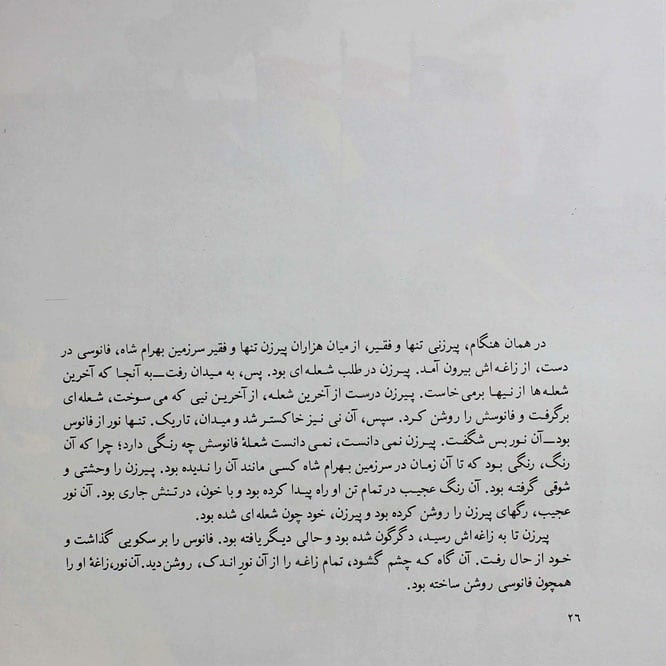 در همان هنگام، پیرزنی تنها و فقیر، از میان هزاران پیرزن تنها و فقیر سرزمین بهرام شاه، فانوسی در
دست، از زاغه‌اش بیرون آمد. پیرزن در طلب شعله‌ای بود. پس، به میدان رفت—به آنجا که آخرین
شعله‌ها از نیها برمی‌خاست. پیرزن درست از آخرین شعله، از آخرین نیی که می‌سوخت، شعله‌ای
برگرفت و فانوسش را روشن کرد. سپس، آن نی نیز خاکستر شد و میدان، تاریک. تنها نور از فانوس
بود—آن نور بس شگفت. پیرزن نمی‌دانست، نمی‌دانست شعلهٔ فانوسش چه رنگی دارد؛ چرا که آن
رنگ، رنگی بود که تا آن زمان در سرزمین بهرام شاه کسی مانند آن را ندیده بود. پیرزن را وحشتی و
شوقی گرفته بود. آن رنگ عجیب در تمام تن او راه پیدا کرده بود و با خون، در تنش جاری بود. آن نور
عجیب، رگهای پیرزن را روشن کرده بود و پیرزن، خود چون شعله‌ای شده بود.
پیرزن تا به زاغه‌اش رسید، دگرگون شده بود و حالی دیگر یافته بود. فانوس را بر سکویی گذاشت و
خود از حال رفت. آن گاه که چشم گشود، تمام زاغه را از آن نورِ اندک، روشن دید. آن نور، زاغهٔ او را
همچون فانوسی روشن ساخته بود.
۲۶